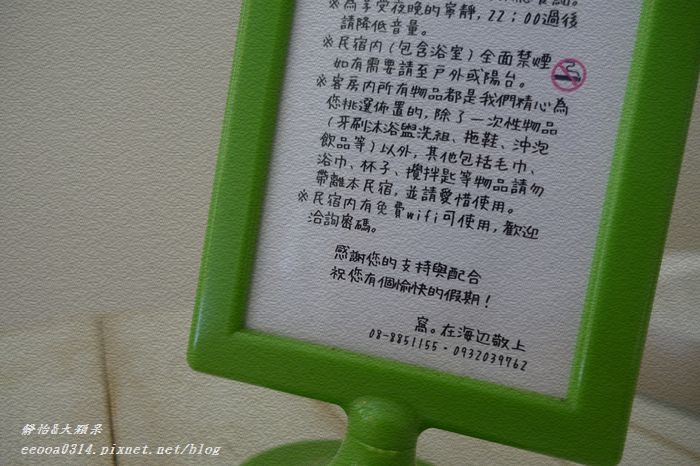 ※為享受夜晚的寧靜,22:00過後
請降低音量。
※民宿內(包含浴室)全面禁煙
如有需要請至戶外或陽台。
※客房內所有物品都是我們精心為
您挑選佈置的,除了一次性物品
(牙刷沐浴盥洗組、拖鞋、沖泡
飲品等)以外,其他包括毛巾、
浴巾、杯子、攪拌匙等物品請勿
帶離本民宿,並請愛惜使用。
※民宿內有免費wifi可使用,歡迎
洽詢密碼。
感謝您的支持與配合
祝您有個愉快的假期!
窩。在海辺敬上
08-8851155·0932039762
靜怡&大顆呆
eeooa0314.pixnet.net/blog